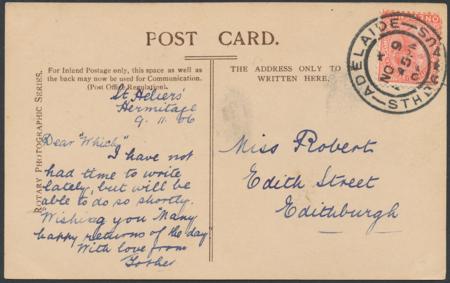 POST CARD.
For Inland Postage only, this space as well as
the back may now be used for Communication.
(Post Office Regulation).
ROTARY PHOTOGRAPHIC SERIES.
St. Heliers'
Hermitage
9. 11. 06
Dear "Which"
I have not
had time to write
lately, but will be
able to do so shortly.
Wishing you "Many
happy returns of the day"
With love from
THE ADDRESS ONLY TO
BE WRITTEN HERE.
Miss Robert
Edith Street
Edithburgh
ADELAIDE
STH AUS
NO 9